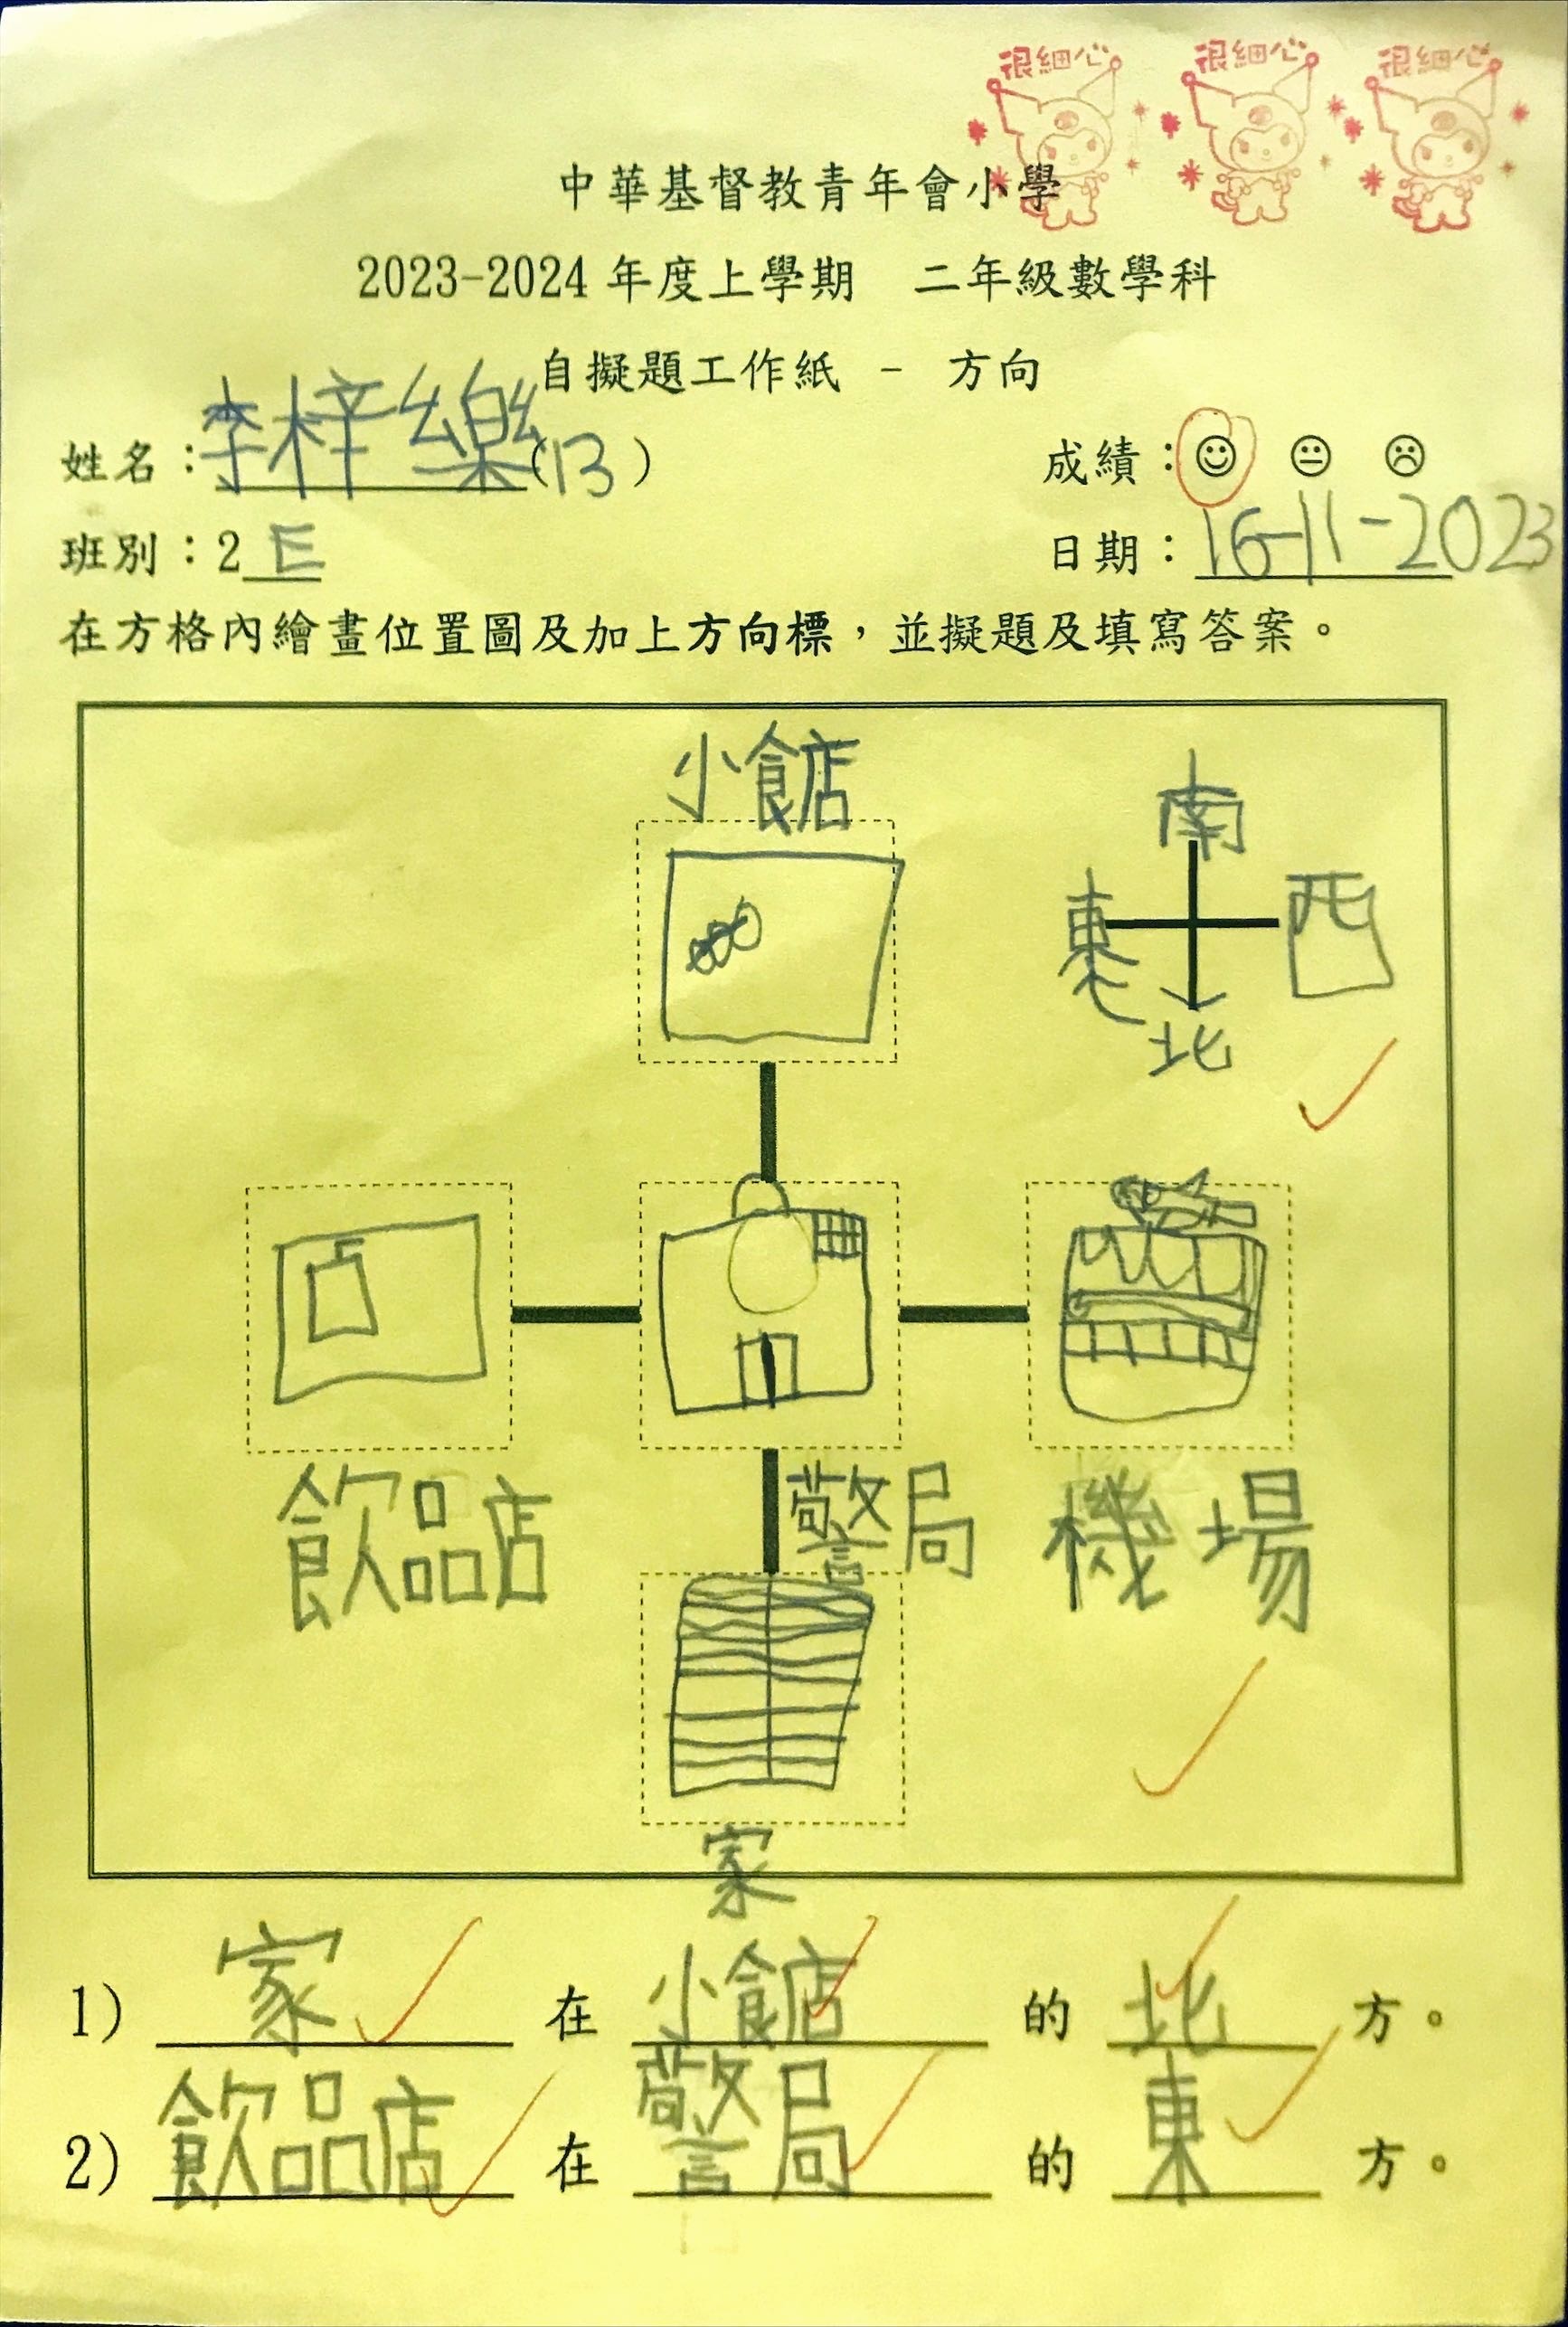 很細心 很細心 很細心
中華基督教青年會小學
2023-2024 年度上學期 二年級數學科
自擬題工作紙 - 方向
姓名：李梓樂(13) 成績：☺ 😐 ☹
班別：2E 日期：16-11-2023
在方格內繪畫位置圖及加上方向標，並擬題及填寫答案。
小食店
南
東 西
北
警局
飲品店 機場
家
1) 家 在 小食店 的 北 方。
2) 飲品店 在 警局 的 東 方。